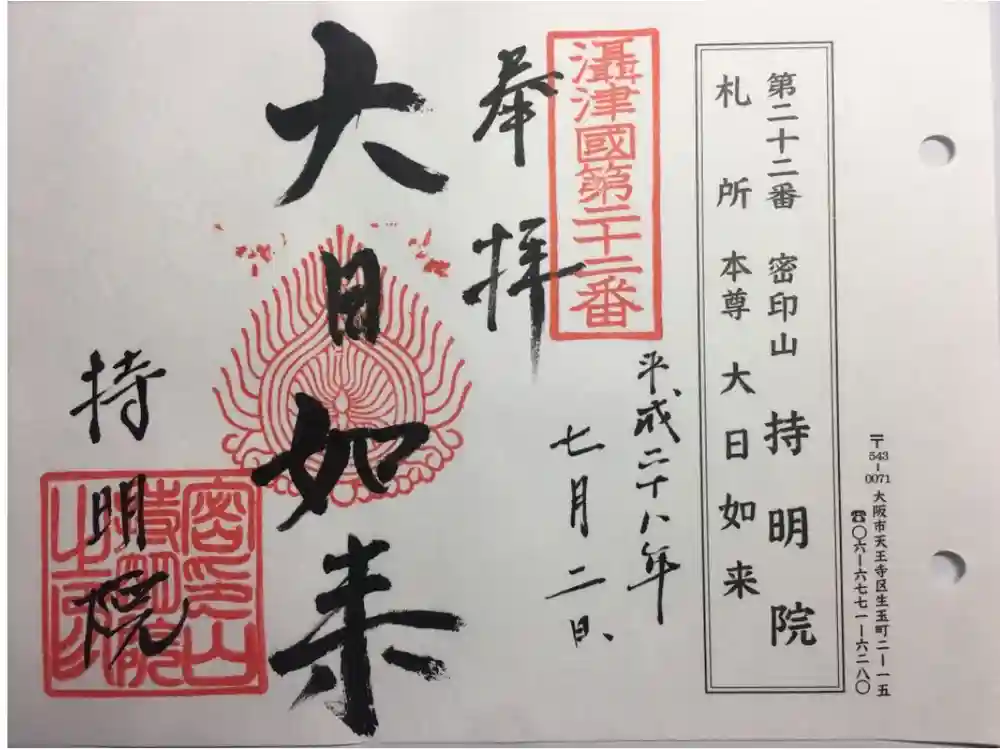 〒543-0071 大阪市天王寺区生玉町二ー一五
☎〇六ー六七七一ー六二八〇
第二十二番 密印山 持明院
札所本尊 大日如来
灄津國第二十二番
奉拝
平成二十八年
七月二日、
大日如来
持明院
密印山
持明院
之印